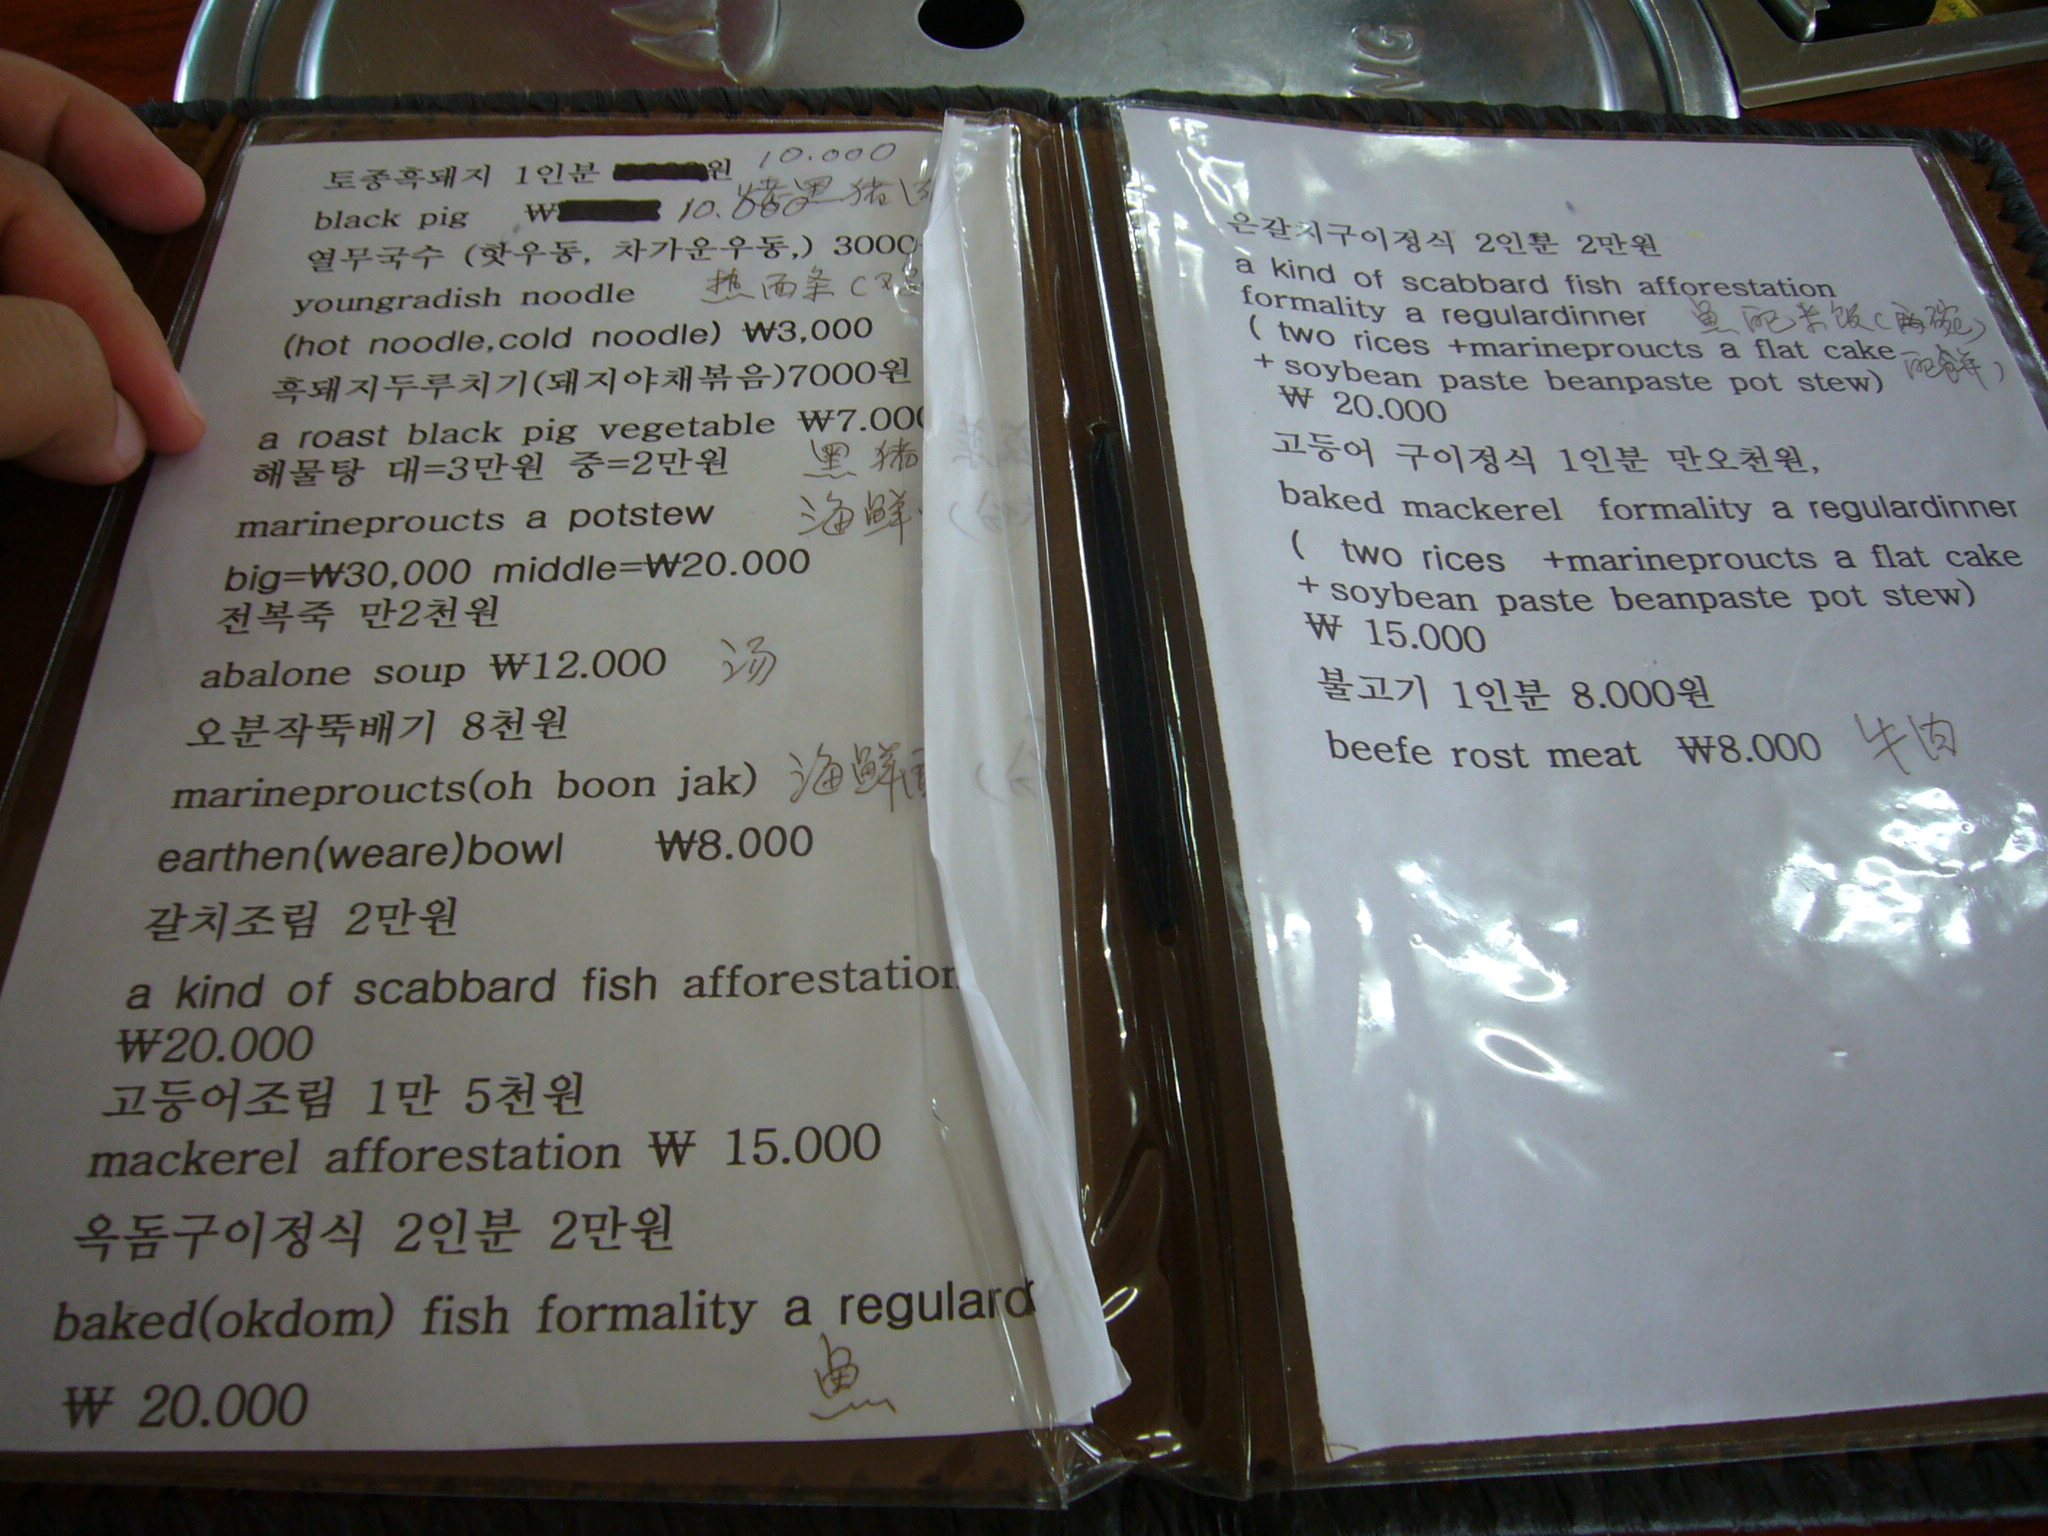 토종흑돼지 1인분 원 10.000
black pig ₩ 10.000 烤黑猪
열무국수 (핫우동, 차가운우동,) 3000
youngradish noodle 热面条(
(hot noodle,cold noodle) ₩3,000
흑돼지두루치기(돼지야채볶음)7000원
a roast black pig vegetable ₩7.000
黑猪
해물탕 대=3만원 중=2만원
marineproucts a potstew 海鲜
big=₩30,000 middle=₩20.000
전복죽 만2천원
abalone soup ₩12.000 汤
오분작뚝배기 8천원
marineproucts(oh boon jak) 海鲜
earthen(weare)bowl ₩8.000
갈치조림 2만원
a kind of scabbard fish afforestation
₩20.000
고등어조림 1만 5천원
mackerel afforestation ₩ 15.000
옥돔구이정식 2인분 2만원
baked(okdom) fish formality a regulard
鱼
₩ 20.000
NG
은갈치구이정식 2인분 2만원
a kind of scabbard fish afforestation
formality a regulardinner 鱼配米饭(两碗)
( two rices +marineproucts a flat cake
+ soybean paste beanpaste pot stew)
₩ 20.000
고등어 구이정식 1인분 만오천원,
baked mackerel formality a regulardinner
( two rices +marineproucts a flat cake
+ soybean paste beanpaste pot stew)
₩ 15.000
불고기 1인분 8.000원
beefe rost meat ₩8.000 牛肉